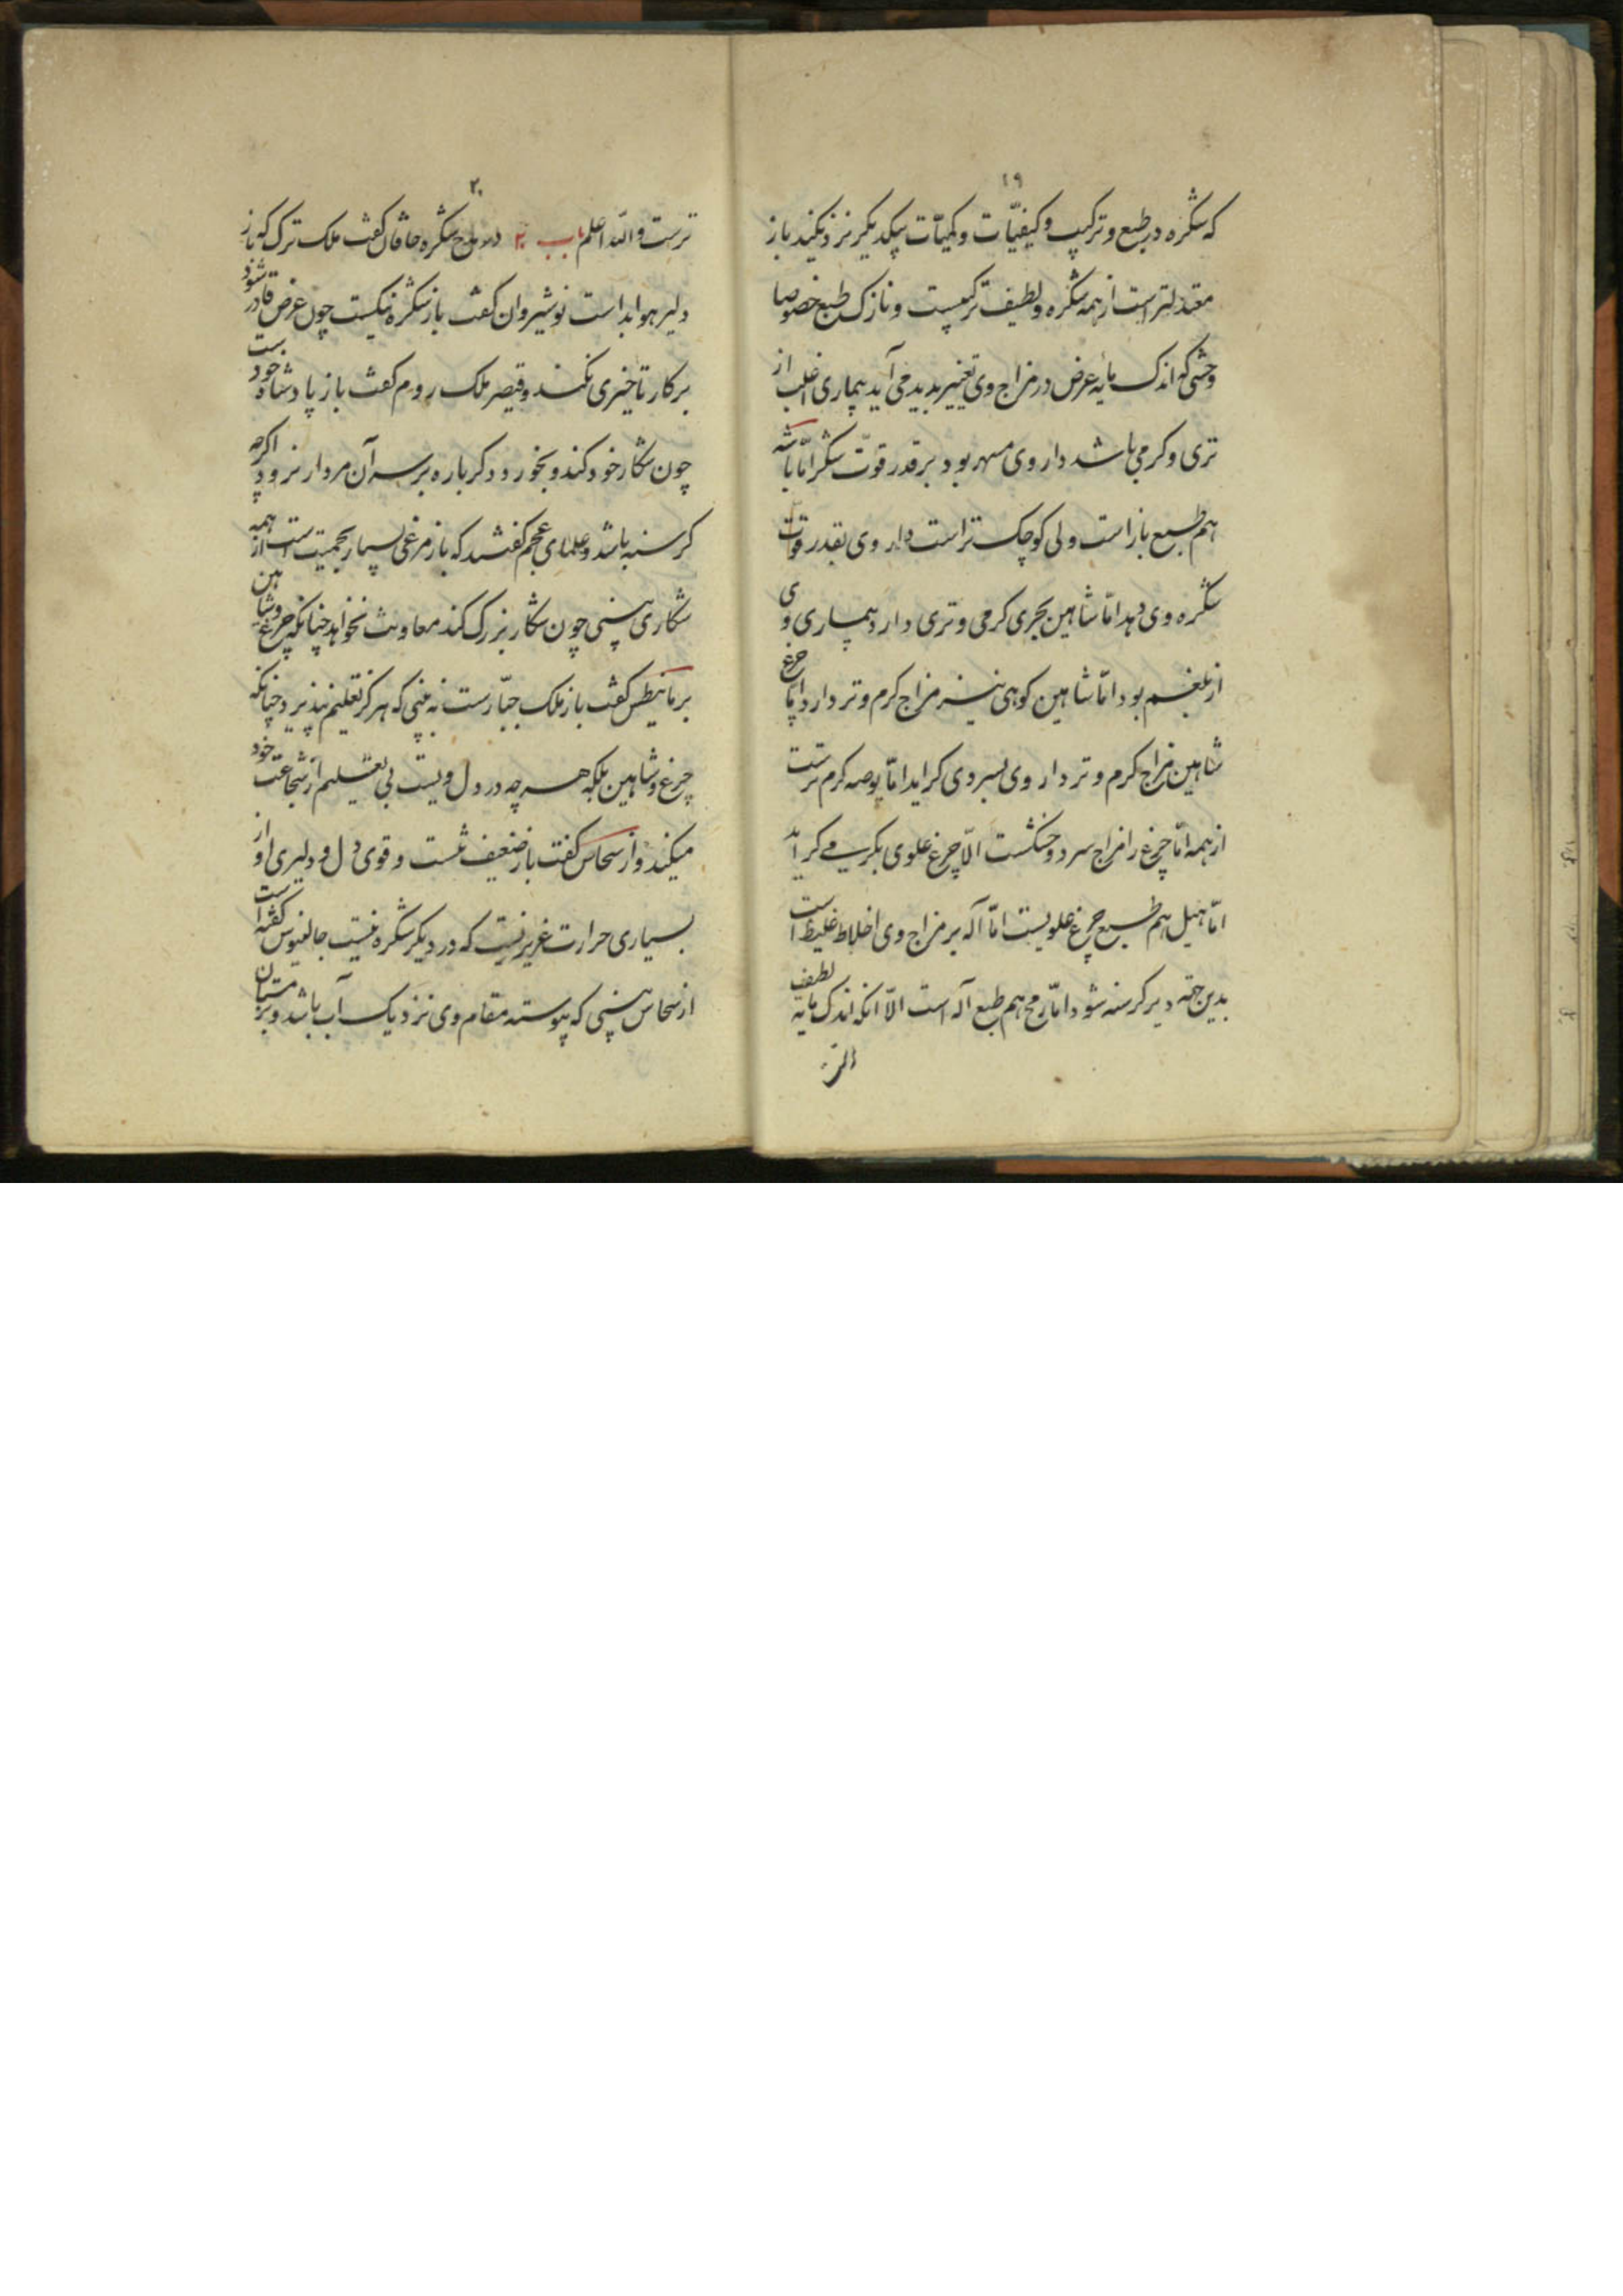 ۱۹
که شکره در طبع و ترکیب و کیفیّات و کمیّات بیکدیگر نزدیکند باز
معتدلتر است از همه شکره و لطیف ترکیبست و نازک طبع خصوصا
وحشی که اندک مایه عرض در مزاج وی تغییر پدید می آید بیماری اغلب از
تری و گرمی باشد داروی مسهر بود بر قدر قوّت شکر امّا باشه
هم طبع باز است ولی کوچک تر است داروی بقدر قوّت
شکره وی دهد امّا شاهین بحری گرمی و تری دارد بیماری وی
از بلغم بود امّا شاهین کوهی نیز مزاج گرم و تر دارد امّا چرغ
شاهین مزاج گرم و تر دارد وی بسردی گراید امّا یوصه گرم ترست
از همه امّا چرغ را مزاج سرد و خشکست الّا چرغ علوی بگرمی گراید
امّا هیل هم طبع چرغ علویست امّا آله بر مزاج وی اخلاط غلیظ است
بدین جهة دیر گرسنه شود امّا رمح هم طبع آله است الّا انکه اندک مایه لطیف
۲۰
ترست و الله اعلم باب ۲ در مدح شکره خاقان گفت ملک ترک که باز
دلیر هوا بداست نوشیروان گفت باز شکره نیکست چون عرض قادر شود
بر کار تاخیری نکند و قیصر ملک روم گفت باز پادشاه خودست
چون شکار خود کند و بخورد و دگر باره بر سر آن مردار نرود اگرچه
گرسنه باشد و علمای عجم گفتند که باز مرغی بسیار بحمیّت است از همه
شکاری نبینی چون شکار بزرگ کند معاونت نخواهد چنانکه چرغ و شاهین
گفت باز ملک جبّارست نه بینی که هرگز تعلیم نپذیرد چنانکه
چرغ و شاهین بلکه هر چه در دل ویست بی تعلیم از شجاعت خود
میکند و ارسحاس گفت باز ضعیف تنست و قوی دل و دلیری او از
بسیاری حرارت غریزیست که در دیگر شکره نیست جالینوس گفته است
ارسحاس نبینی که پیوسته مقام وی نزدیک آب باشد و بزمستان